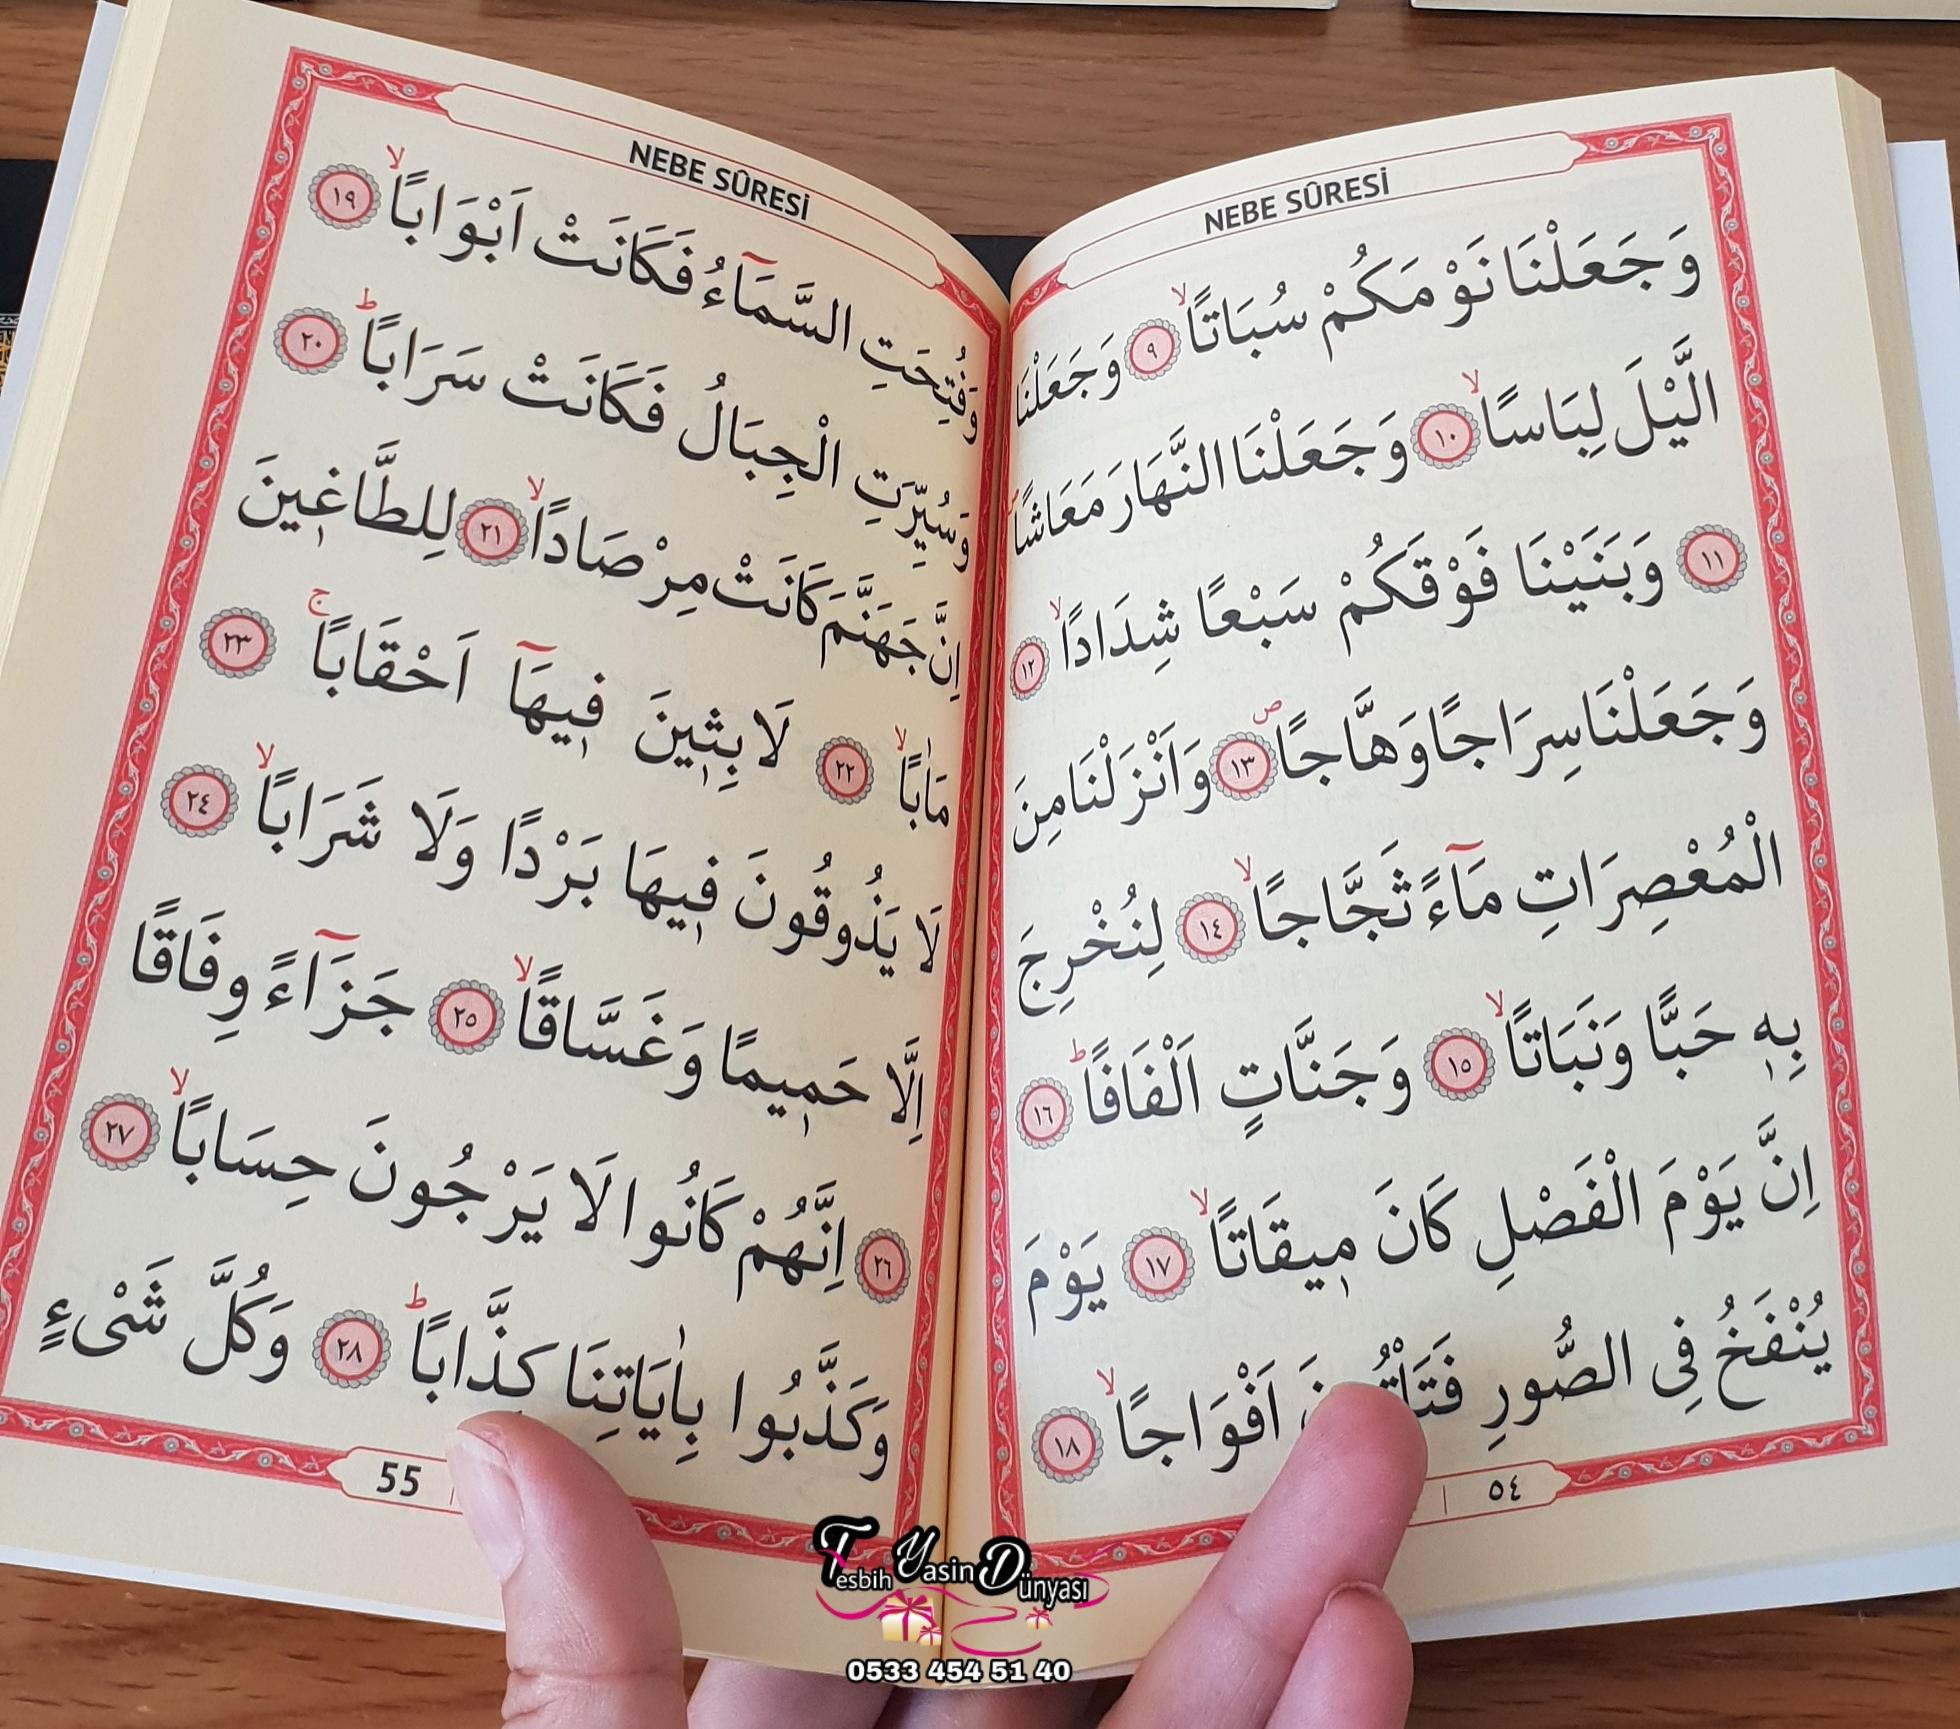 NEBE SÛRESİ
وَجَعَلْنَا نَوْمَكُمْ سُبَاتًاۙ ﴿٩﴾ وَجَعَلْنَا
الَّيْلَ لِبَاسًاۙ ﴿١٠﴾ وَجَعَلْنَا النَّهَارَ مَعَاشًاۖ
﴿١١﴾ وَبَنَيْنَا فَوْقَكُمْ سَبْعًا شِدَادًاۙ ﴿١٢﴾
وَجَعَلْنَا سِرَاجًا وَهَّاجًاۖ ﴿١٣﴾ وَاَنْزَلْنَا مِنَ
الْمُعْصِرَاتِ مَٓاءً ثَجَّاجًاۙ ﴿١٤﴾ لِنُخْرِجَ
بِه۪ حَبًّا وَنَبَاتًاۙ ﴿١٥﴾ وَجَنَّاتٍ اَلْفَافًاۜ ﴿١٦﴾
اِنَّ يَوْمَ الْفَصْلِ كَانَ م۪يقَاتًاۙ ﴿١٧﴾ يَوْمَ
يُنْفَخُ فِي الصُّورِ اَفْوَاجًاۙ ﴿١٨﴾
٥٤
NEBE SÛRESİ
وَفُتِحَتِ السَّمَٓاءُ فَكَانَتْ اَبْوَابًاۙ ﴿١٩﴾
وَسُيِّرَتِ الْجِبَالُ فَكَانَتْ سَرَابًاۜ ﴿٢٠﴾
اِنَّ جَهَنَّمَ كَانَتْ مِرْصَادًاۙ ﴿٢١﴾ لِلطَّاغ۪ينَ
مَاٰبًاۙ ﴿٢٢﴾ لَابِث۪ينَ ف۪يهَٓا اَحْقَابًاۚ ﴿٢٣﴾
لَا يَذُوقُونَ ف۪يهَا بَرْدًا وَلَا شَرَابًاۙ ﴿٢٤﴾
اِلَّا حَم۪يمًا وَغَسَّاقًاۙ ﴿٢٥﴾ جَزَٓاءً وِفَاقًا
﴿٢٦﴾ اِنَّهُمْ كَانُوا لَا يَرْجُونَ حِسَابًاۙ ﴿٢٧﴾
وَكَذَّبُوا بِاٰيَاتِنَا كِذَّابًاۜ ﴿٢٨﴾ وَكُلَّ شَيْءٍ
55
Tesbih Yasin Dünyası
0533 454 51 40